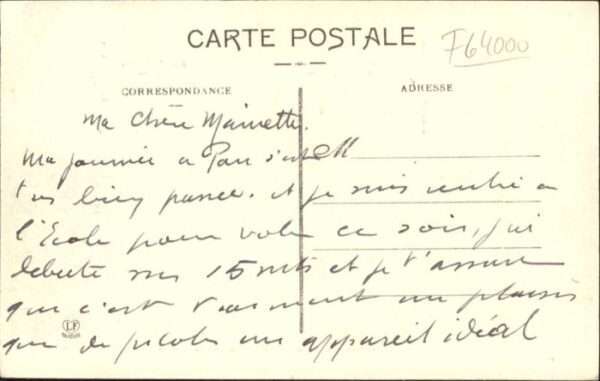 CARTE POSTALE
F64000
CORRESPONDANCE
ADRESSE
Ma Chère Mainette.
Ma journée a Pau s'est
très bien passée. et je suis rentré a
l'Ecole pour voler ce soir, j'ai
debuté sur 15 mts et je t'assure
que c'est vraiment un plaisir
que de piloter un appareil idéal
LF